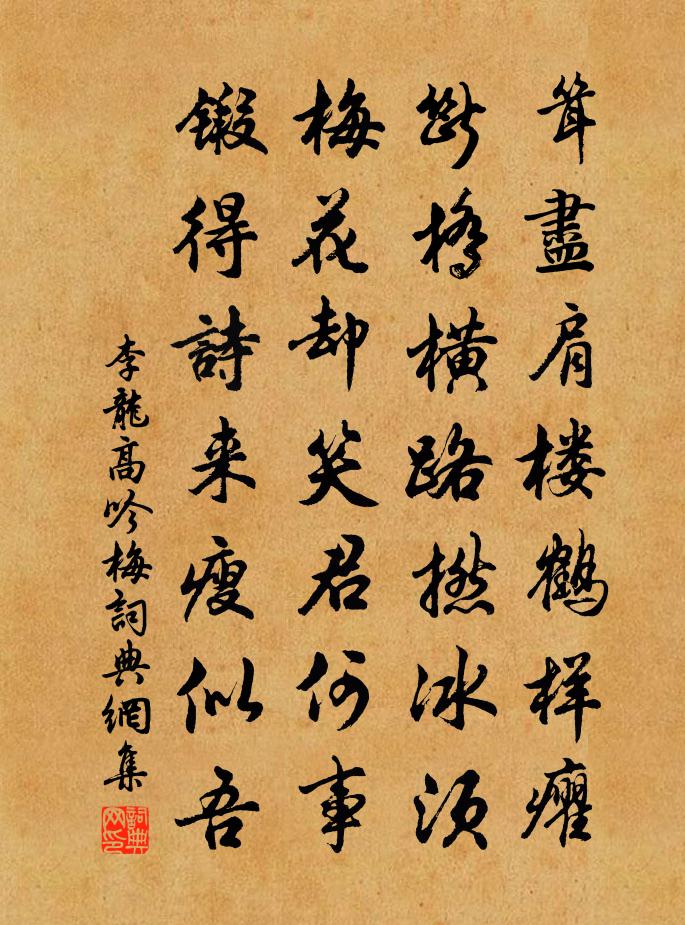 耸盡肩楼鶴样癯
断橋横路撚冰須
梅花却笑君何事
鍛得詩来瘦似吾
李龍高吟梅詞典網集
詞典网印